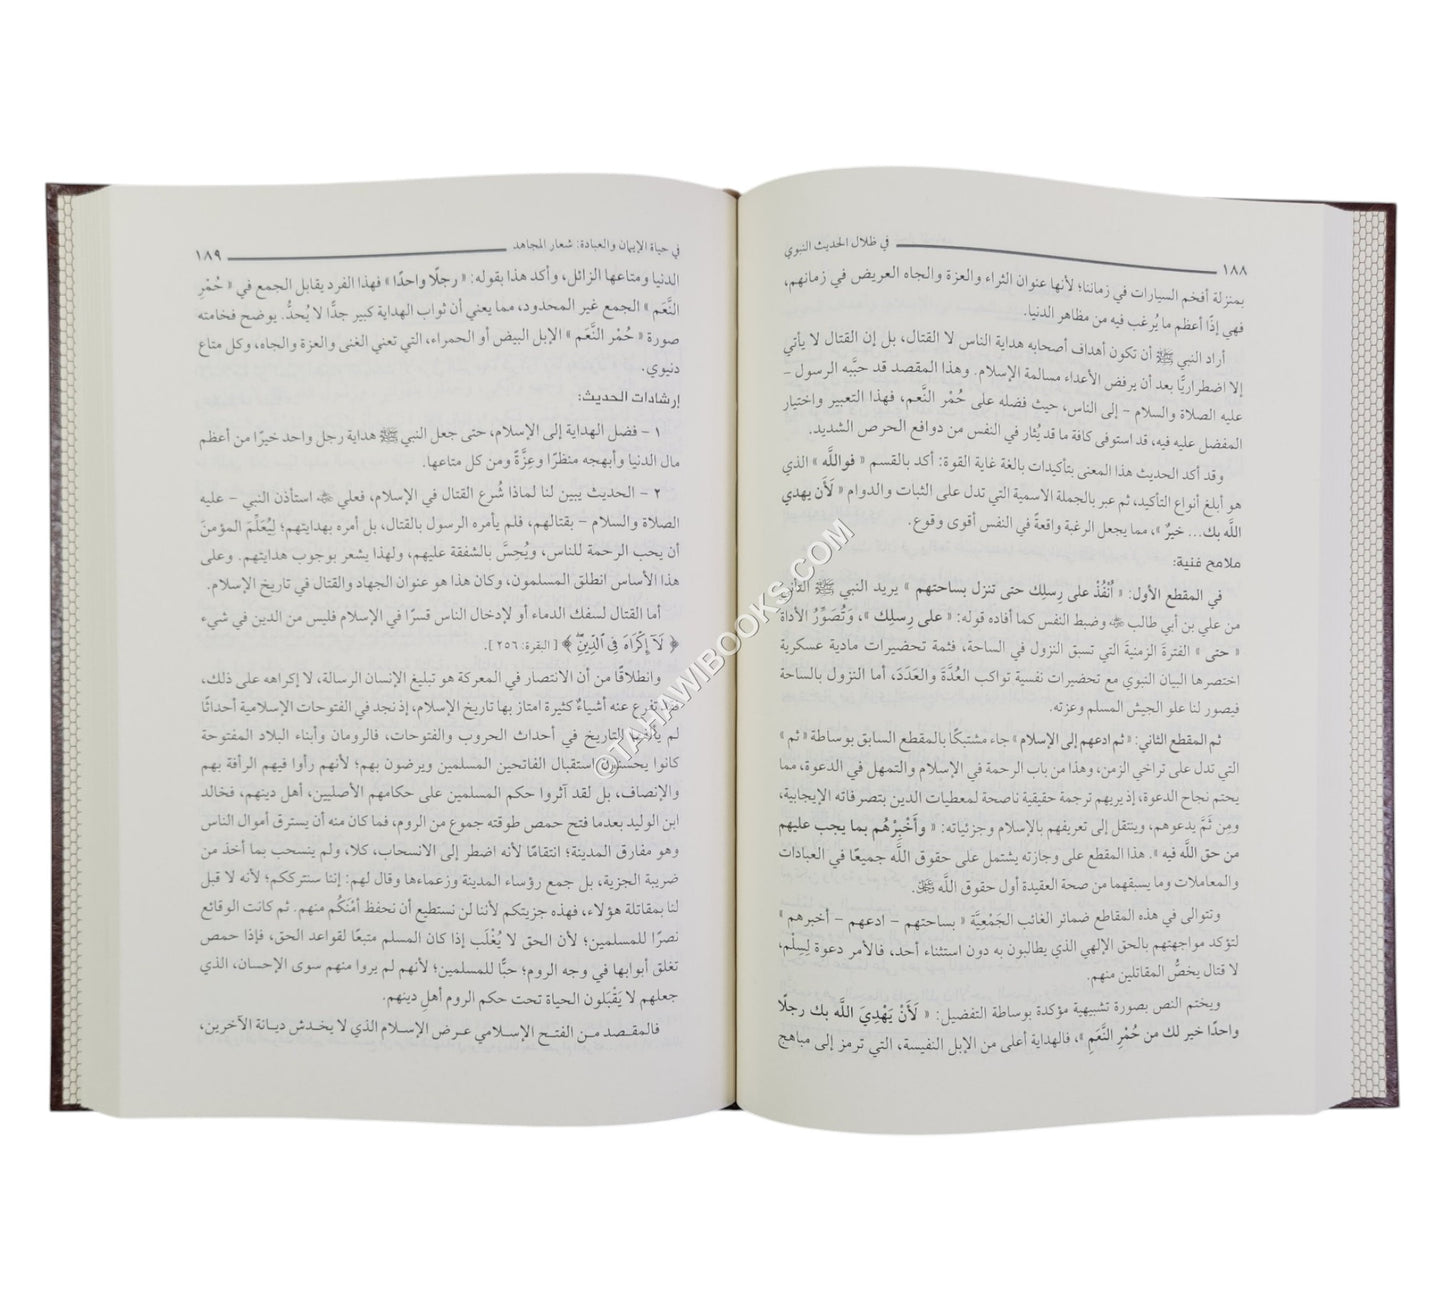 ١٨٨ في ظلال الحديث النبوي
بمنزلة أفخم السيارات في زماننا؛ لأنها عنوان الثراء والعزة والجاه العريض في زمانهم،
فهي إذًا أعظم ما يُرغب فيه من مظاهر الدنيا.
أراد النبي ﷺ أن تكون أهداف أصحابه هداية الناس لا القتال، بل إن القتال لا يأتي
إلا اضطراريًّا بعد أن يرفض الأعداء مسالمة الإسلام. وهذا المقصد قد حبَّبه الرسول –
عليه الصلاة والسلام – إلى الناس، حيث فضله على حُمْر النَّعم، فهذا التعبير واختيار
المفضل عليه فيه، قد استوفى كافة ما قد يُثار في النفس من دوافع الحرص الشديد.
وقد أكد الحديث هذا المعنى بتأكيدات بالغة غاية القوة: أكد بالقسم « فواللَّه » الذي
هو أبلغ أنواع التأكيد، ثم عبر بالجملة الاسمية التي تدل على الثبات والدوام « لَأَن يهدي
اللَّه بك... خيرٌ »، مما يجعل الرغبة واقعةً في النفس أقوى وقوع.
ملامح فنية:
في المقطع الأول: « اُنْفُذْ على رِسلِك حتى تنزل بساحتهم » يريد النبي ﷺ التأني
من علي بن أبي طالب ﷺ وضبط النفس كما أفاده قوله: « على رِسلِك »، وَتُصَوِّرُ الأداة
« حتى » الفترة الزمنية التي تسبق النزول في الساحة، فثمة تحضيرات مادية عسكرية
اختصرها البيان النبوي مع تحضيرات نفسية تواكب العُدَّةَ والعَدَدَ، أما النزول بالساحة
فيصور لنا علو الجيش المسلم وعزته.
ثم المقطع الثاني: « ثم ادعهم إلى الإسلام » جاء مشتبكًا بالمقطع السابق بوساطة « ثم »
التي تدل على تراخي الزمن، وهذا من باب الرحمة في الإسلام والتمهل في الدعوة، مما
يحتم نجاح الدعوة، إذ يريهم ترجمة حقيقية ناصحة لمعطيات الدين بتصرفاته الإيجابية،
ومِن ثَمَّ يدعوهم، وينتقل إلى تعريفهم بالإسلام وجزئياته: « وأَخْبِرْهُم بما يجب عليهم
من حق اللَّه فيه ». هذا المقطع على وجازته يشتمل على حقوق اللَّه جميعًا في العبادات
والمعاملات وما يسبقهما من صحة العقيدة أول حقوق اللَّه ﷻ.
وتتوالى في هذه المقاطع ضمائر الغائب الجَمْعِيَّة « بساحتهم – ادعهم – أخبرهم »
لتؤكد مواجهتهم بالحق الإلهي الذي يطالبون به دون استثناء أحد، فالأمر دعوة لِسِلْم،
لا قتال يخصُّ المقاتلين منهم.
ويختم النص بصورة تشبيهية مؤكدة بوساطة التفضيل: « لَأَنْ يَهْدِيَ اللَّه بك رجلًا
واحدًا خير لك من حُمْرِ النَّعَمِ »، فالهداية أعلى من الإبل النفيسة، التي ترمز إلى مباهج
في حياة الإيمان والعبادة: شعار المجاهد ١٨٩
الدنيا ومتاعها الزائل، وأكد هذا بقوله: « رجلًا واحدًا » فهذا الفرد يقابل الجمع في « حُمْرِ
النَّعَم » الجمع غير المحدود، مما يعني أن ثواب الهداية كبير جدًّا لا يُحدُّ. يوضح فخامته
صورة « حُمْر النَّعَم » الإبل البيض أو الحمراء، التي تعني الغنى والعزة والجاه، وكل متاع
دنيوي.
إرشادات الحديث:
١ – فضل الهداية إلى الإسلام، حتى جعل النبي ﷺ هداية رجل واحد خيرًا من أعظم
مال الدنيا وأبهجه منظرًا وعِزَّةً ومن كل متاعها.
٢ – الحديث يبين لنا لماذا شُرع القتال في الإسلام، فعلي استأذن النبي – عليه
الصلاة والسلام – بقتالهم، فلم يأمره الرسول بالقتال، بل أمره بهدايتهم؛ لِيُعَلِّمَ المؤمنَ
أن يحب الرحمة للناس، ويُحِسَّ بالشفقة عليهم، ولهذا يشعر بوجوب هدايتهم. وعلى
هذا الأساس انطلق المسلمون، وكان هذا هو عنوان الجهاد والقتال في تاريخ الإسلام.
أما القتال لسفك الدماء أو لإدخال الناس قسرًا في الإسلام فليس من الدين في شيء
﴿ لَآ إِكْرَاهَ فِى ٱلدِّينِۖ ﴾ [ البقرة: ٢٥٦ ].
وانطلاقًا من أن الانتصار في المعركة هو تبليغ الإنسان الرسالة، لا إكراهه على ذلك،
تفرع عنه أشياءُ كثيرة امتاز بها تاريخ الإسلام، إذ نجد في الفتوحات الإسلامية أحداثًا
لم يألفها التاريخ في أحداث الحروب والفتوحات، فالرومان وأبناء البلاد المفتوحة
كانوا يحسنون استقبال الفاتحين المسلمين ويرضون بهم؛ لأنهم رأوا فيهم الرأفة بهم
والإنصاف، بل لقد آثروا حكم المسلمين على حكامهم الأصليين، أهل دينهم، فخالد
ابن الوليد بعدما فتح حمص طوقته جموع من الروم، فما كان منه أن يسترق أموال الناس
وهو مفارق المدينة؛ انتقامًا لأنه اضطر إلى الانسحاب، كلا، ولم ينسحب بما أخذ من
ضريبة الجزية، بل جمع رؤساء المدينة وزعماءها وقال لهم: إننا سنترككم؛ لأنه لا قبل
لنا بمقاتلة هؤلاء، فهذه جزيتكم لأننا لن نستطيع أن نحفظ أمْنَكُم منهم. ثم كانت الوقائع
نصرًا للمسلمين؛ لأن الحق لا يُغْلَب إذا كان المسلم متبعًا لقواعد الحق، فإذا حمص
تغلق أبوابها في وجه الروم؛ حبًّا للمسلمين؛ لأنهم لم يروا منهم سوى الإحسان، الذي
جعلهم لا يَقْبَلون الحياة تحت حكم الروم أهلِ دينهم.
فالمقصد من الفتح الإسلامي عرض الإسلام الذي لا يخدش ديانة الآخرين،
©TAHAWIBOOKS.COM